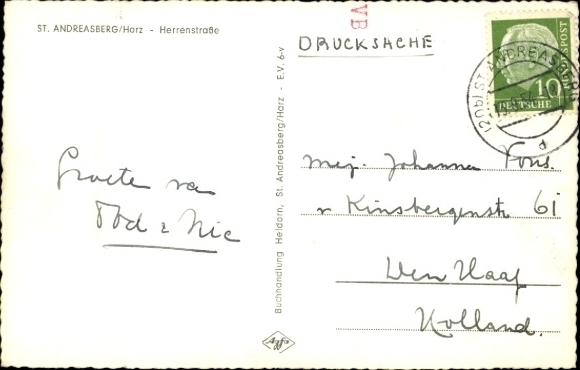 ST. ANDREASBERG/Harz - Herrenstraße
VB
DRUCKSACHE
10
DEUTSCHE BUNDESPOST
(20b) ST. ANDREASBERG
d
Groeten van
Nic
Buchhandlung Heidorn, St. Andreasberg/Harz - E.V. 6-v
Agfa
Mej. Johanna
v Kinsbergenstr 61
Den Haag
Holland.